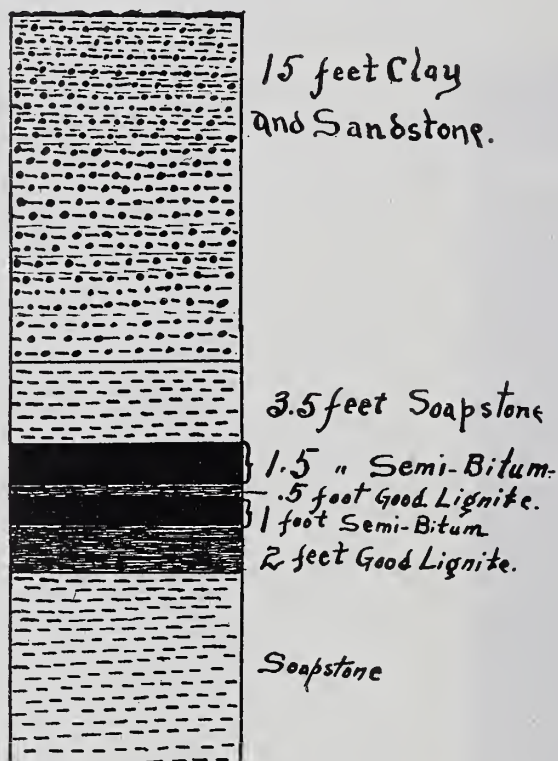 15 feet Clay
and Sandstone.
3.5 feet Soapstone
1.5 " Semi-Bitum-
.5 foot Good Lignite.
1 foot Semi-Bitum
2 feet Good Lignite.
Soapstone